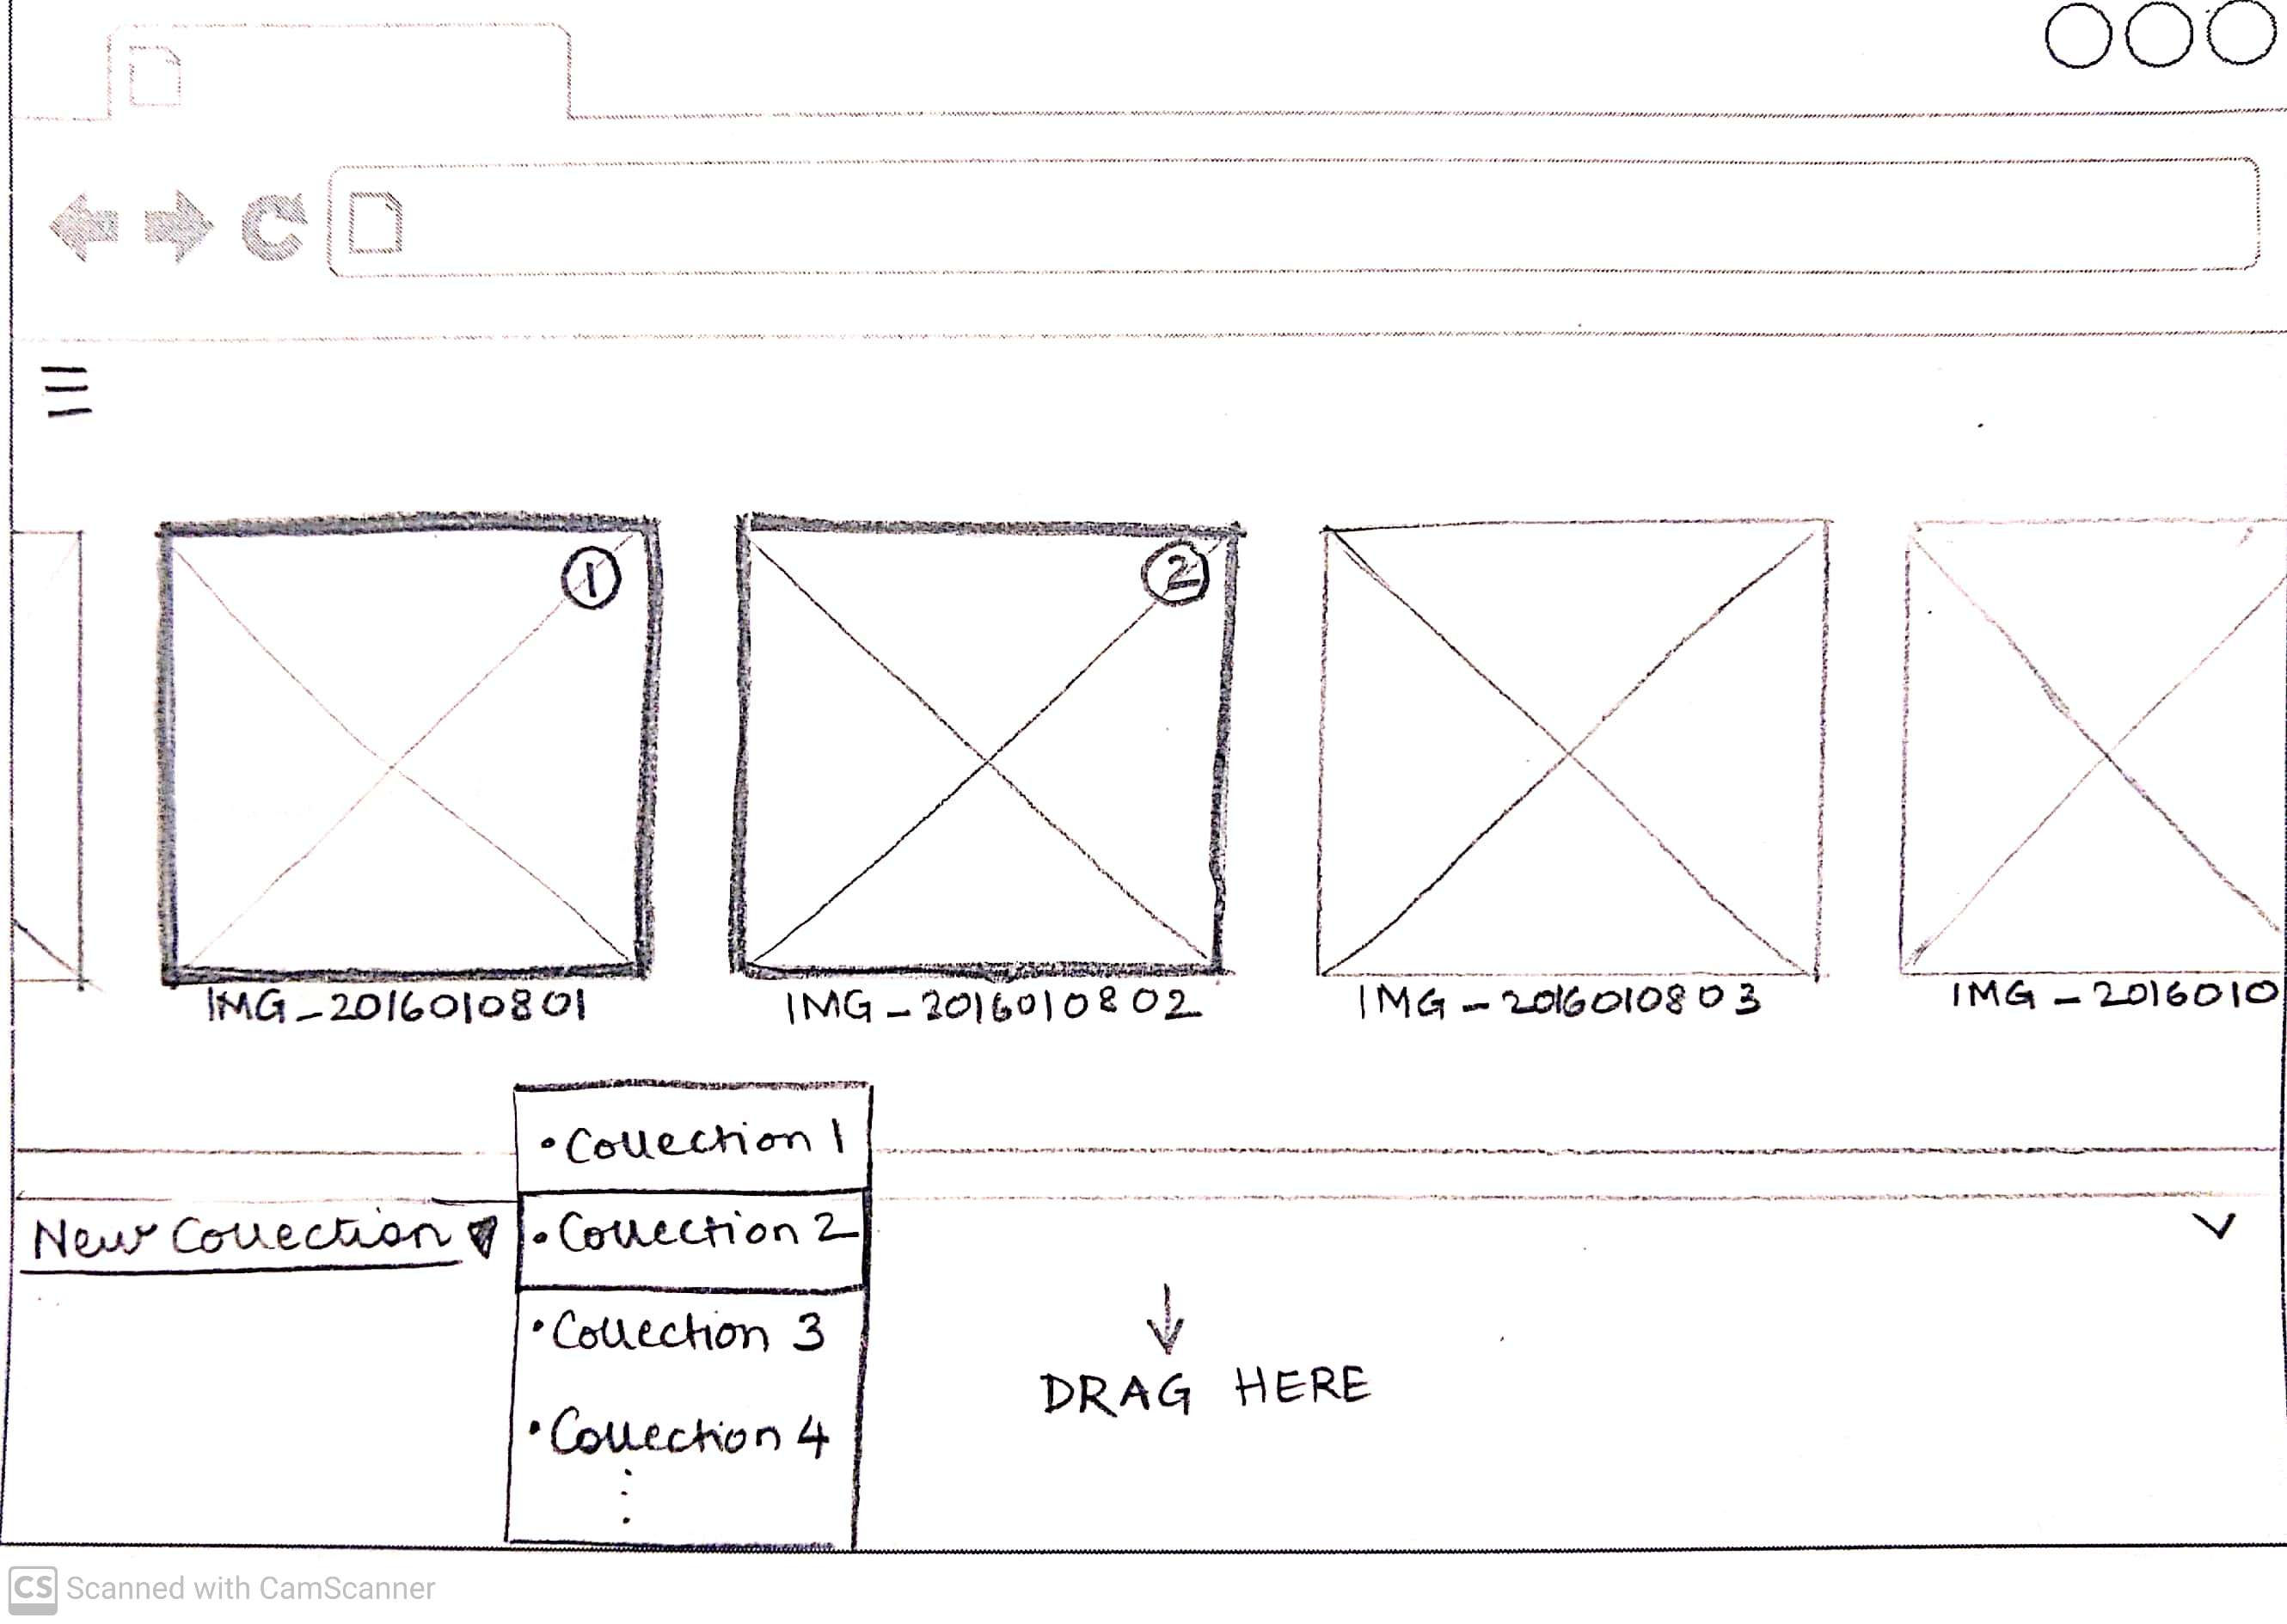 1
2
IMG_2016010801
IMG_2016010802
IMG_2016010803
IMG_2016010
New Collection
• Collection 1
• Collection 2
• Collection 3
• Collection 4
↓
DRAG HERE
CS Scanned with CamScanner